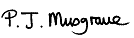 P. J. Musgrave